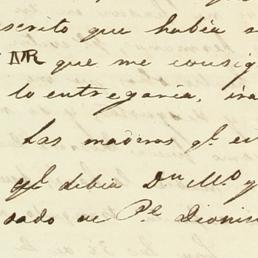 scrito que había
MR que me consig
lo entregaría, ira
Las maderas qe. en
qe. debia Dn. Mo. y
sado de Pe. Dionis